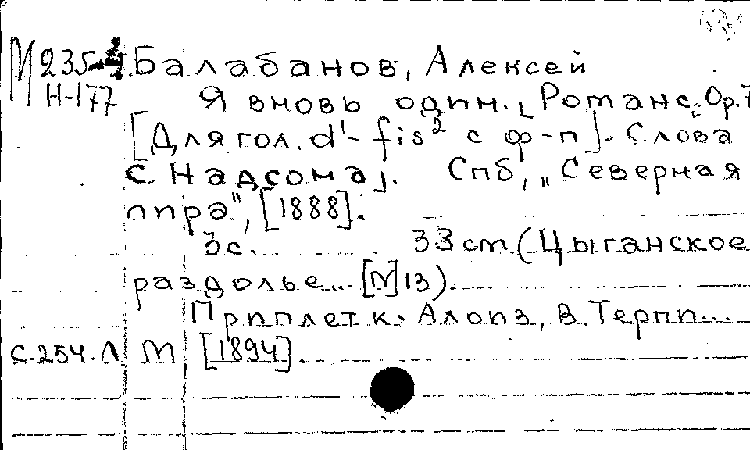 М 235-4. Балабанов, Алексей
Н-177 Я вновь один. [Романс. Ор.7
[Для гол. d¹- fis² с ф-п]. Слова
С. Надсона]. Спб, „Северная
лира", [1888].
3с. 33 cm. (Цыганское
раздолье... [N]13).
Приплет к: Алоиз, В. Терпи...
С.254. Л М [1894]